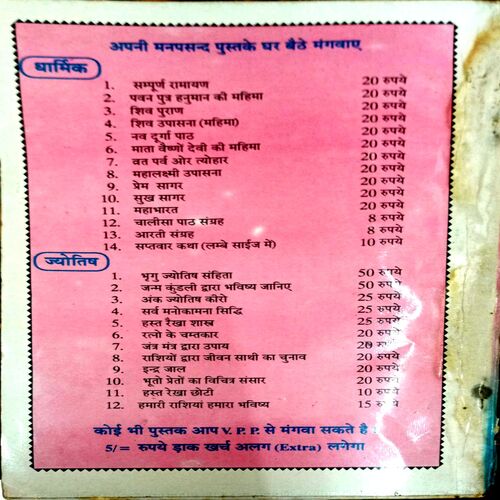 अपनी मनपसन्द पुस्तके घर बैठे मंगवाए
धार्मिक
1. सम्पूर्ण रामायण 20 रुपये
2. पवन पुत्र हनुमान की महिमा 20 रुपये
3. शिव पुराण 20 रुपये
4. शिव उपासना (महिमा) 20 रुपये
5. नव दूर्गा पाठ 20 रुपये
6. माता वैष्णों देवी की महिमा 20 रुपये
7. व्रत पर्व ओर त्योहार 20 रुपये
8. महालक्ष्मी उपासना 20 रुपये
9. प्रेम सागर 20 रुपये
10. सुख सागर 20 रुपये
11. महाभारत 20 रुपये
12. चालीसा पाठ संग्रह 8 रुपये
13. आरती संग्रह 8 रुपये
14. सप्तवार कथा (लम्बे साईज में) 10 रुपये
ज्योतिष
1. भृगु ज्योतिष संहिता 50 रुपये
2. जन्म कुंडली द्वारा भविष्य जानिए 50 रुपये
3. अंक ज्योतिष कीरो 25 रुपये
4. सर्व मनोकामना सिद्धि 25 रुपये
5. हस्त रेखा शास्त्र 25 रुपये
6. रत्नो के चमत्कार 20 रुपये
7. जंत्र मंत्र द्वारा उपाय 20 रुपये
8. राशियों द्वारा जीवन साथी का चुनाव 20 रुपये
9. इन्द्र जाल 20 रुपये
10. भूतो प्रेतों का विचित्र संसार 20 रुपये
11. हस्त रेखा छोटी 10 रुपये
12. हमारी राशियां हमारा भविष्य 15 रुपये
कोई भी पुस्तक आप V.P.P. से मंगवा सकते है
5/= रुपये ड़ाक खर्च अलग (Extra) लगेगा